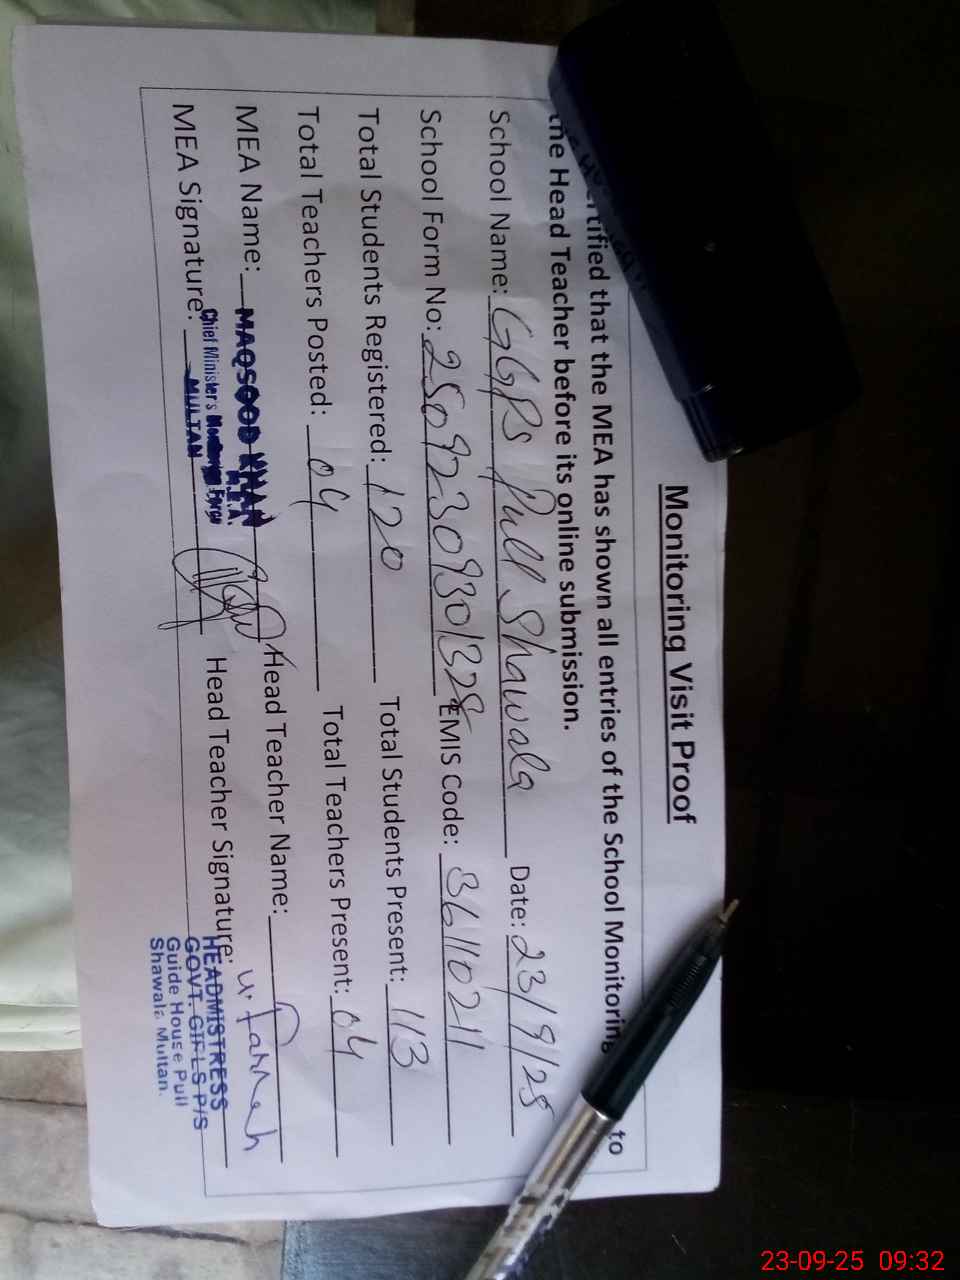 Monitoring Visit Proof
certified that the MEA has shown all entries of the School Monitoring to
the Head Teacher before its online submission.
School Name: GGPS Pull Shawala Date: 23/9/25
School Form No: 25092309301328 EMIS Code: 36110211
Total Students Registered: 120 Total Students Present: 113
Total Teachers Posted: 04 Total Teachers Present: 04
MEA Name: MAQSOOD KHAN Head Teacher Name:
M.E.A.
MEA Signature: Head Teacher Signature:
Chief Minister's Monitoring Force
MULTAN
HEADMISTRESS
GOVT. GIRLS P/S
Guide House Pull
Shawala Multan.
23-09-25 09:32